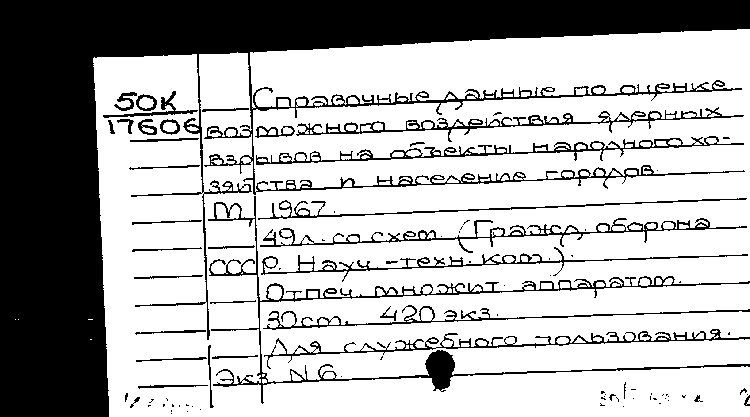 50К
17606
Справочные данные по оценке
возможного воздействия ядерных
взрывов на объекты народного хо-
зяйства и население городов
М, 1967.
49л. со схем. (Гражд. оборона
СССР. Науч.-техн. ком.).
Отпеч. множит. аппаратом.
30см. 420 экз.
Для служебного пользования.
Экз. N6.